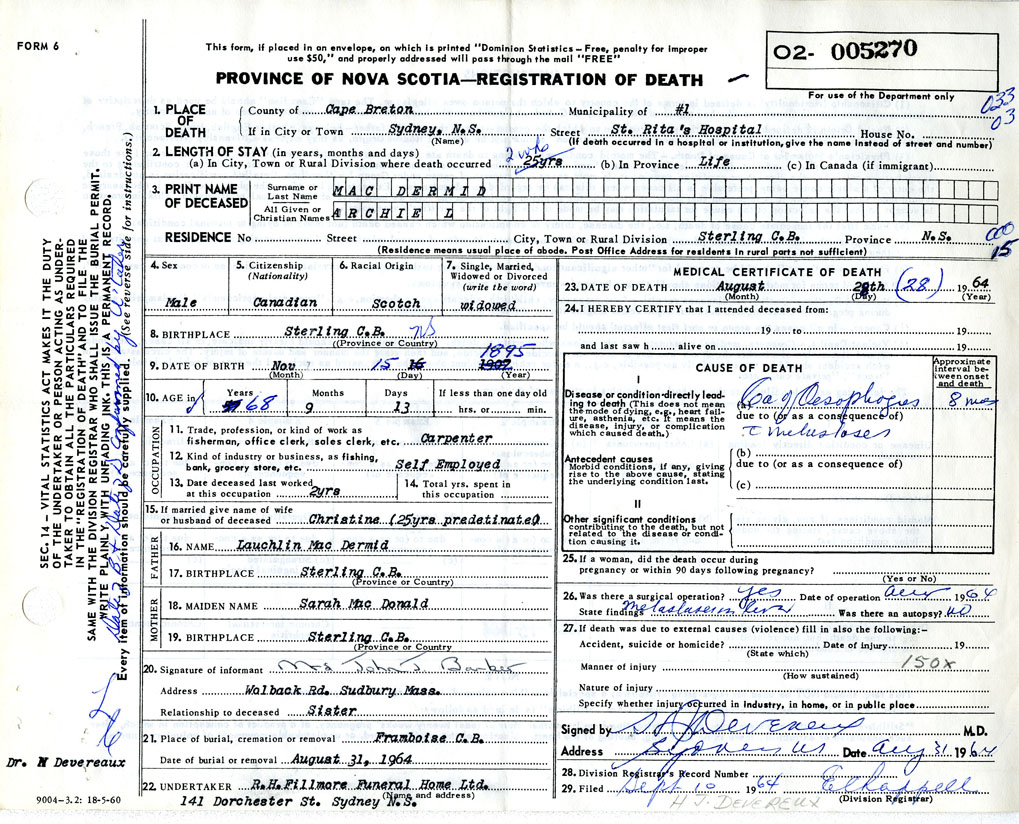 FORM 6
This form, if placed in an envelope, on which is printed "Dominion Statistics – Free, penalty for improper
use $50," and properly addressed will pass through the mail "FREE"
O2- 005270
PROVINCE OF NOVA SCOTIA—REGISTRATION OF DEATH
For use of the Department only
033
03
1. PLACE OF DEATH
County of Cape Breton Municipality of #1
If in City or Town Sydney, N.S. Street St. Rita's Hospital House No.
(Name) (If death occurred in a hospital or institution, give name instead of street and number)
2. LENGTH OF STAY (in years, months and days)
2 wks
(a) In City, Town or Rural Division where death occurred 25yrs (b) In Province Life (c) In Canada (if immigrant)
3. PRINT NAME OF DECEASED
Surname or Last Name MAC DERMID
All Given or Christian Names ARCHIE L
RESIDENCE No Street City, Town or Rural Division Sterling C.B. Province N.S.
000
15
(Residence means usual place of abode. Post Office Address for residents in rural parts not sufficient)
4. Sex
Male
5. Citizenship (Nationality)
Canadian
6. Racial Origin
Scotch
7. Single, Married, Widowed or Divorced (write the word)
widowed
8. BIRTHPLACE Sterling C.B. NS
(Province or Country)
1895
9. DATE OF BIRTH Nov 15 16 1907
(Month) (Day) (Year)
10. AGE in Years Months Days If less than one day old
68 9 13 hrs. or min.
OCCUPATION
11. Trade, profession, or kind of work as
fisherman, office clerk, sales clerk, etc. Carpenter
12. Kind of industry or business, as fishing,
bank, grocery store, etc. Self Employed
13. Date deceased last worked
at this occupation 2yrs
14. Total yrs. spent in
this occupation
15. If married give name of wife
or husband of deceased Christine (25yrs predetinate)
FATHER
16. NAME Lauchlin Mac Dermid
17. BIRTHPLACE Sterling C.B.
(Province or Country)
MOTHER
18. MAIDEN NAME Sarah Mac Donald
19. BIRTHPLACE Sterling C.B.
(Province or Country
20. Signature of informant Mrs John J. Barker
Address Wolback Rd. Sudbury Mass.
Relationship to deceased Sister
21. Place of burial, cremation or removal Framboise C.B.
Date of burial or removal August 31, 1964
22. UNDERTAKER R.H.Fillmore Funeral Home Ltd.
(Name and address)
141 Dorchester St. Sydney N.S.
MEDICAL CERTIFICATE OF DEATH
23. DATE OF DEATH August 28th (28) 1964
(Month) (Day) (Year)
24. I HEREBY CERTIFY that I attended deceased from:
19 to 19
and last saw h alive on 19
CAUSE OF DEATH
Approximate interval between onset and death
I
Disease or condition directly leading to death (This does not mean the mode of dying, e.g., heart failure, asthenia, etc. It means the disease, injury, or complication which caused death.)
(a) Ca of Oesophogus 8 mos
due to (or as a consequence of)
c metastases
Antecedent causes
Morbid conditions, if any, giving rise to the above cause, stating the underlying condition last.
(b)
due to (or as a consequence of)
(c)
II
Other significant conditions
contributing to the death, but not related to the disease or condition causing it.
25. If a woman, did the death occur during
pregnancy or within 90 days following pregnancy?
(Yes or No)
26. Was there a surgical operation? yes Date of operation Aug 1964
State findings Metastases in liver Was there an autopsy? NO
27. If death was due to external causes (violence) fill in also the following:–
Accident, suicide or homicide? Date of injury 19
(State which)
150X
Manner of injury
(How sustained)
Nature of injury
Specify whether injury occurred in industry, in home, or in public place
Signed by Devereaux M.D.
Address Sydney NS Date Aug 31 1964
28. Division Registrar's Record Number
29. Filed Sept 10 1964
(Division Registrar)
H J. DEVEREUX
SEC. 14 – VITAL STATISTICS ACT MAKES IT THE DUTY
OF THE UNDERTAKER OR PERSON ACTING AS UNDER-
TAKER TO OBTAIN ALL THE PARTICULARS REQUIRED
IN THE "REGISTRATION OF DEATH" AND TO FILE THE
SAME WITH THE DIVISION REGISTRAR WHO SHALL ISSUE THE BURIAL PERMIT.
WRITE PLAINLY WITH UNFADING INK. THIS IS A PERMANENT RECORD.
Every item of information should be carefully supplied. (See reverse side for instructions.)
Dr. H Devereaux
9004–3.2: 18-5-60